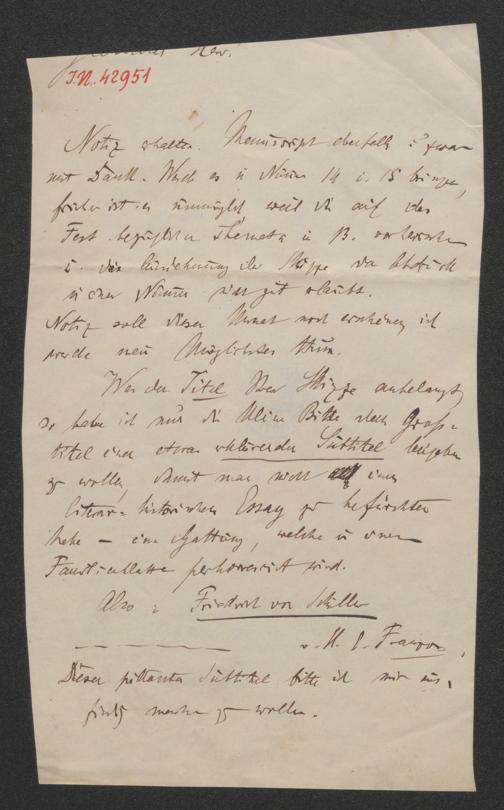 J.N. 42951
Notiz erhalten. Manuscript ebenfalls u. zwar
mit Dank. Werde es in Numm 14 u. 15 bringen,
früher ist es unmöglich, weil die auf das
Fest bezüglichen Themata in 13. vorherrschen
u. die Ausdehnung der Skizze den Abdruck
in einer Numer nicht gut erlaubt.
Notiz soll diesen Monat noch erscheinen, ich
werde mein Möglichstes thun.
Was den Titel Ihrer Skizze anbelangt,
so habe ich nur die kleine Bitte dem Groß-
titel einen etwas erklärenden Subtitel beigeben
zu wollen, damit man nicht einen
literar-historischen Essay zu befürchten
habe – eine Gattung, welche in einem
Familienblatte perhorrescirt wird.
Also: Friedrich von Schiller
v. K. E. Franzos.
Diesen pikanten Subtitel bitte ich mir
machen zu wollen.